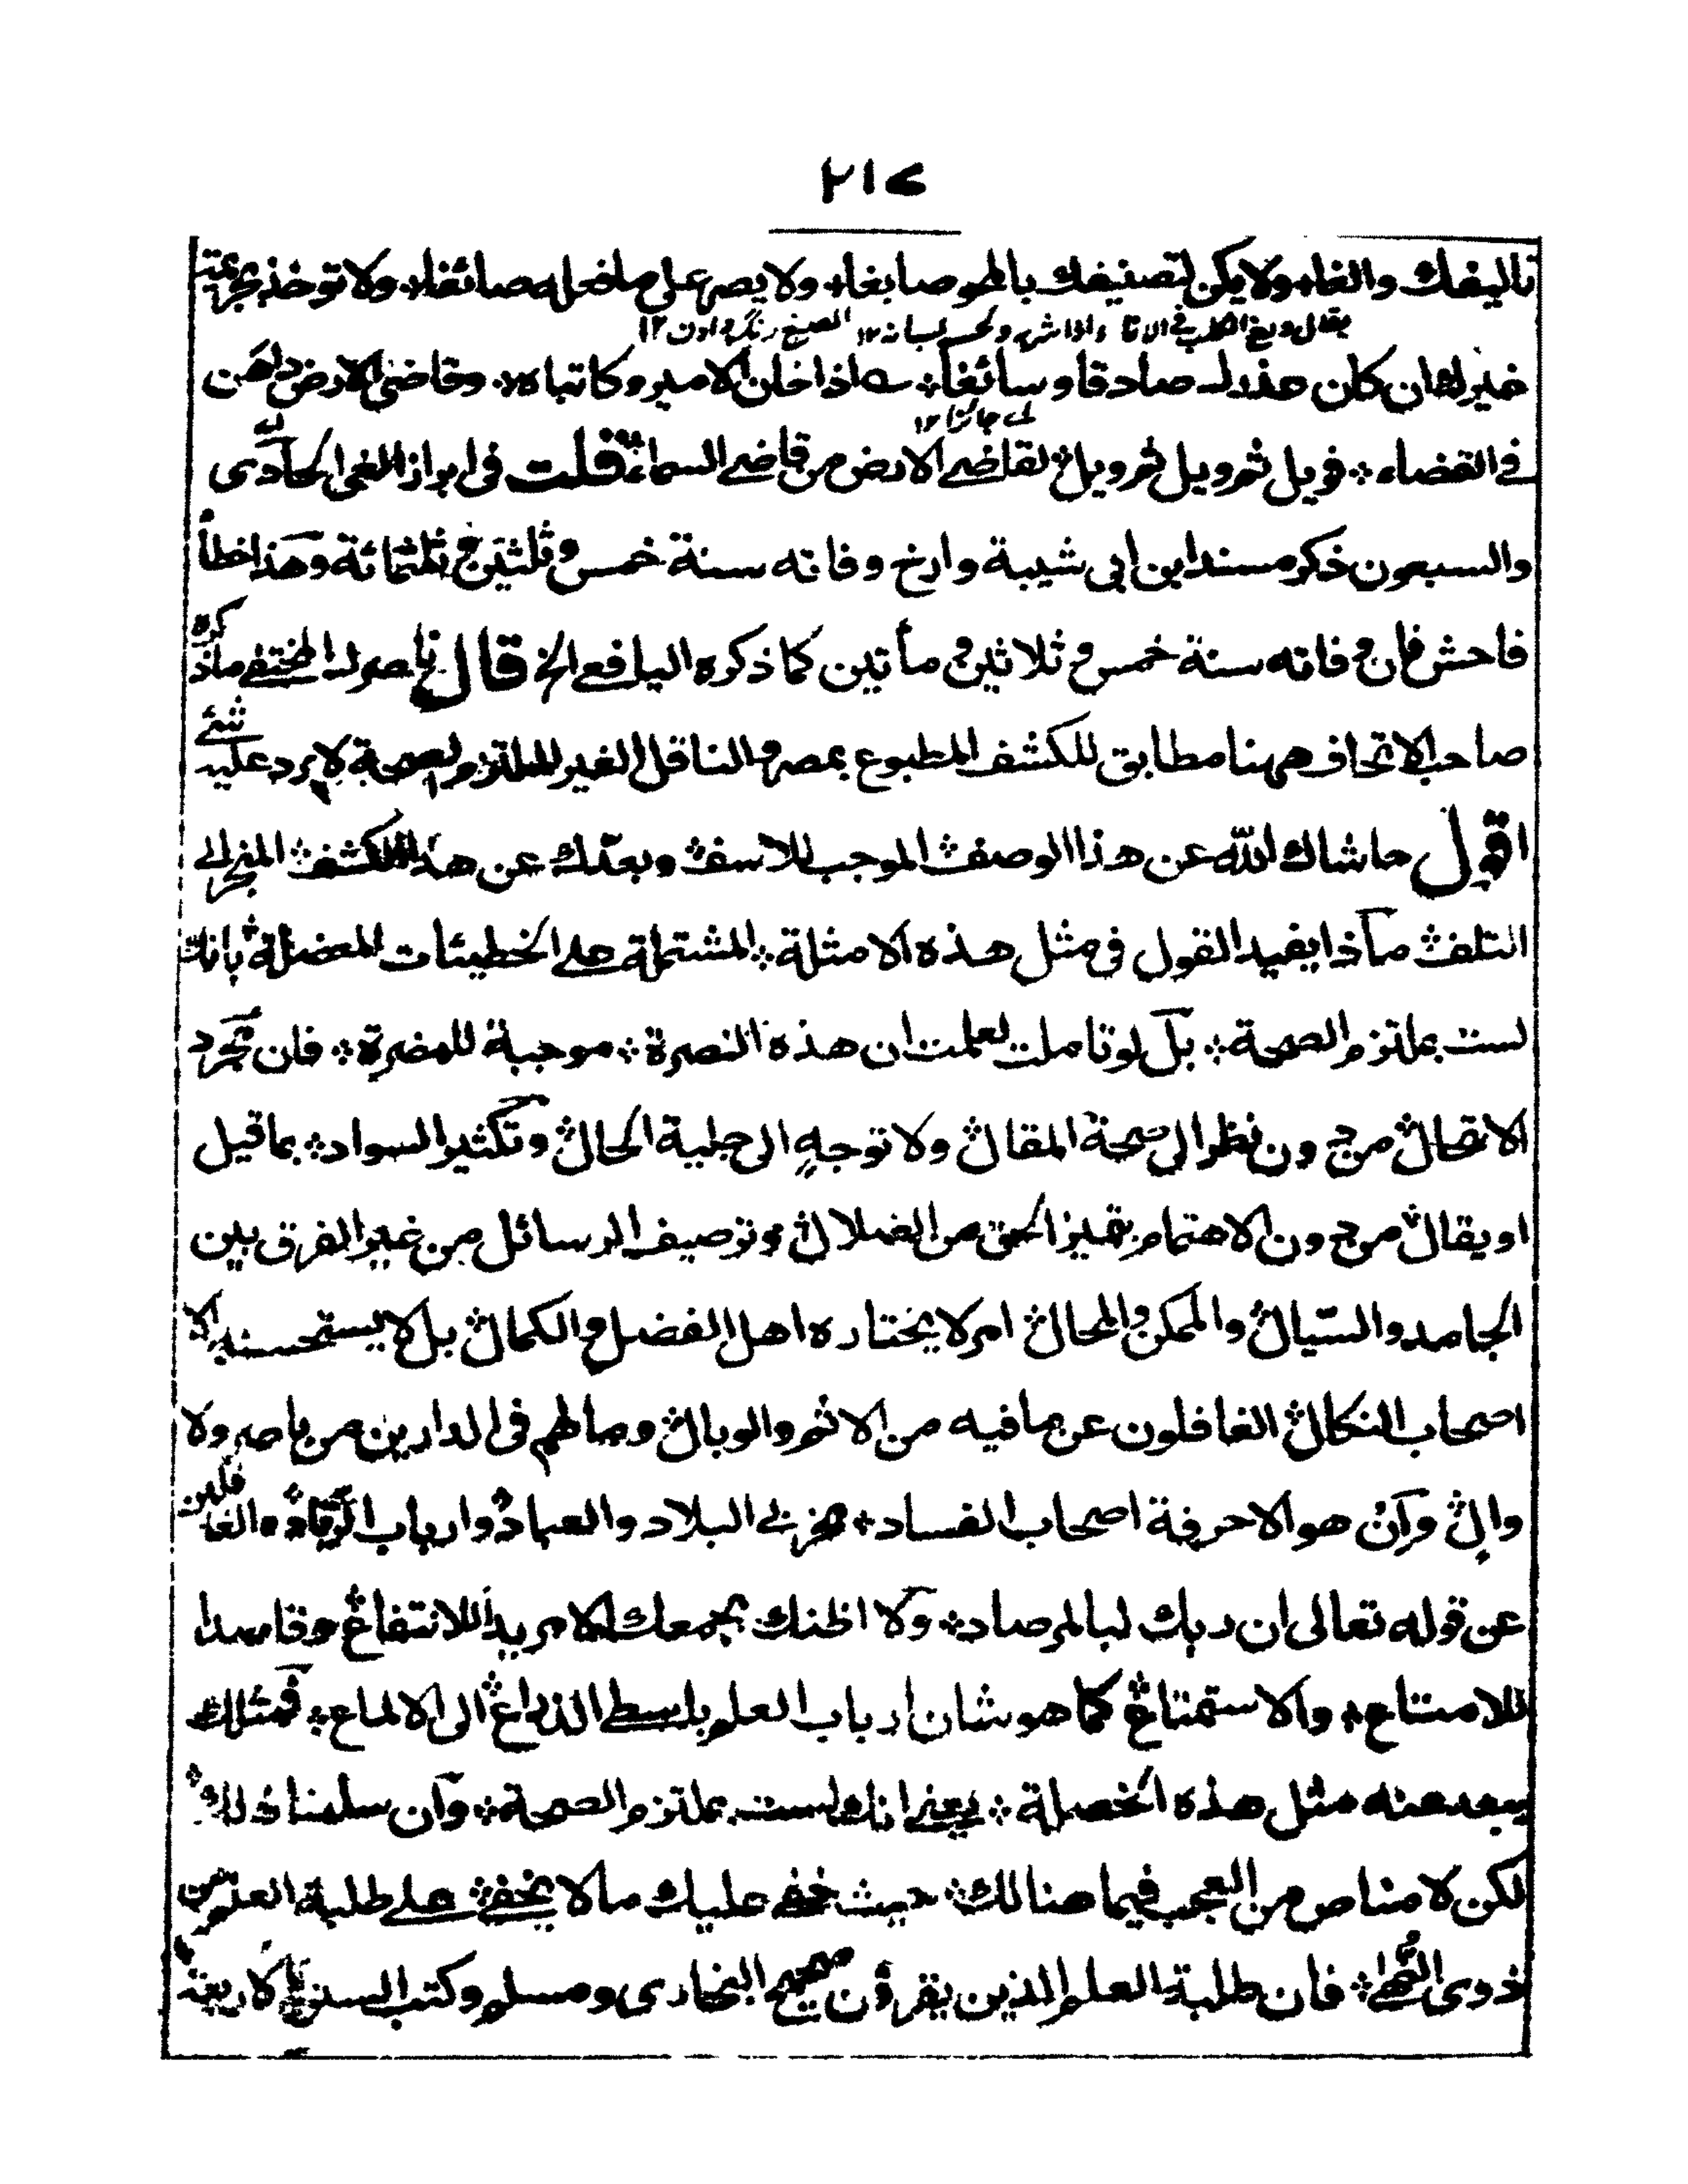 ٢١٧
تاليفك والغا، ولا يكن لتصنيفك بالمحو صابغا، ولا يصر على ما فعله صائغا، ولا توخذ بجريمة
الصبغ رنگ دادن ١٢
غيرك ان كان عذرك صادقا وسائغا، اذا خان الامير وكاتباه، وقاضى الارض داهن
اى جائزا ١٢
فى القضاء، فويل ثم ويل ثم ويل، لقاضى الارض من قاضى السماء، قلت فى ابراز الغى الحادى
والسبعون ذكر مسند ابن ابى شيبة وارخ وفاته سنة خمس وثلثين وثلثمائة وهذا خطأ
فاحش فان وفاته سنة خمس وثلاثين ومأتين كما ذكره اليافعى الخ قال ناصرك المختفى ما ذكره
صاحب الاتحاف ههنا مطابق للكشف المطبوع بمصر والناقل الغير الملتزم لصحة لا يرد عليه شئ
اقول حاشاك الله عن هذا الوصف الموجب للاسف وبعدك عن هذا الكشف المنجر الى
التلف ماذا يفيد القول فى مثل هذه الامثلة، المشتملة على الخطيئات المعضلة، بانك
لست بملتزم الصحة، بل لو تاملت لعلمت ان هذه النصرة، موجبة للمضرة، فان مجرد
الانتحال من دون نظر الى صحة المقال ولا توجه الى جلية الحال وتكثير السواد، بما قيل
او يقال من دون الاهتمام بتميز الحق من الضلال وتوصيف الرسائل من غير الفرق بين
الجامد والسيال والممكن والمحال امر لا يختاره اهل الفضل والكمال بل لا يستحسنه الا
اصحاب النكال الغافلون عن ما فيه من الاثم والوبال وما لهم فى الدارين من ناصر ولا
وال وان هو الا حرفة اصحاب الفساد، مخربى البلاد والعباد وارباب الرقاد، الغافلين
عن قوله تعالى ان ربك لبالمرصاد، ولا اظنك بجمعك الا مريدا للانتفاع وقاصدا
للامتاع، والاستمتاع كما هو شان ارباب العلم باسط الذراع الى الالماع، فمثلك
يبعد عنه مثل هذه الخصلة، يعنى انك لست بملتزم الصحة، وان سلمنا ذلك
لكن لا مناص من العجب فيما هنالك، حيث خفى عليك ما لا يخفى على طلبة العلم من
ذوى النهى، فان طلبة العلم الذين يقرؤن صحيح البخارى ومسلم وكتب السنن الاربعة